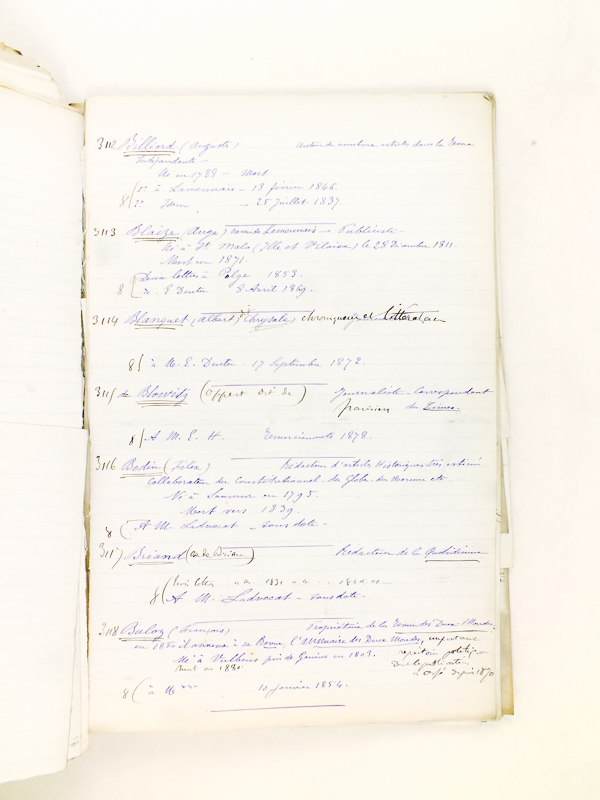 3112 Billiard (Auguste) auteur de nombreux articles dans la Revue
Indépendante –
Né en 1788 – Mort
8 1° à Lamennais – 13 février 1846.
2° Idem – 25 Juillet 1837.
3113 Blaize (Ange) neveu de Lamennais – Publiciste.
Né à St Malo (Ille et Vilaine) le 28 Décembre 1811.
Mort en 1871.
8 Deux lettres à 1853.
à E. 8 Avril 1869.
3114 Blanquet (Albert) chroniqueur et littérateur
8 à M. E. 17 Septembre 1872.
3115 de Blowitz (Oppert dit de) Journaliste. Correspondant
parisien du Times.
8 A M. E. H. Remerciements 1878.
3116 Bodin (Félix) Rédacteur d'articles Historiques très estimés
collaborateur du Constitutionnel, du Globe, du Mercure etc.
Né à Saumur en 1795.
Mort vers 1839.
8 A M. Ladvocat – sans date.
3117 Briand Rédacteur de la Quotidienne
8 A M. Ladvocat – sans date.
3118 Buloz (François) Propriétaire de la Revue des Deux-Mondes,
en 1850 il annexa à sa Revue, l'annuaire des Deux Mondes, important
répertoire politique
Né à Vulbens près de Genève en 1803. dont la publication
a cessé depuis 1870
8 à M*** 10 janvier 1854.